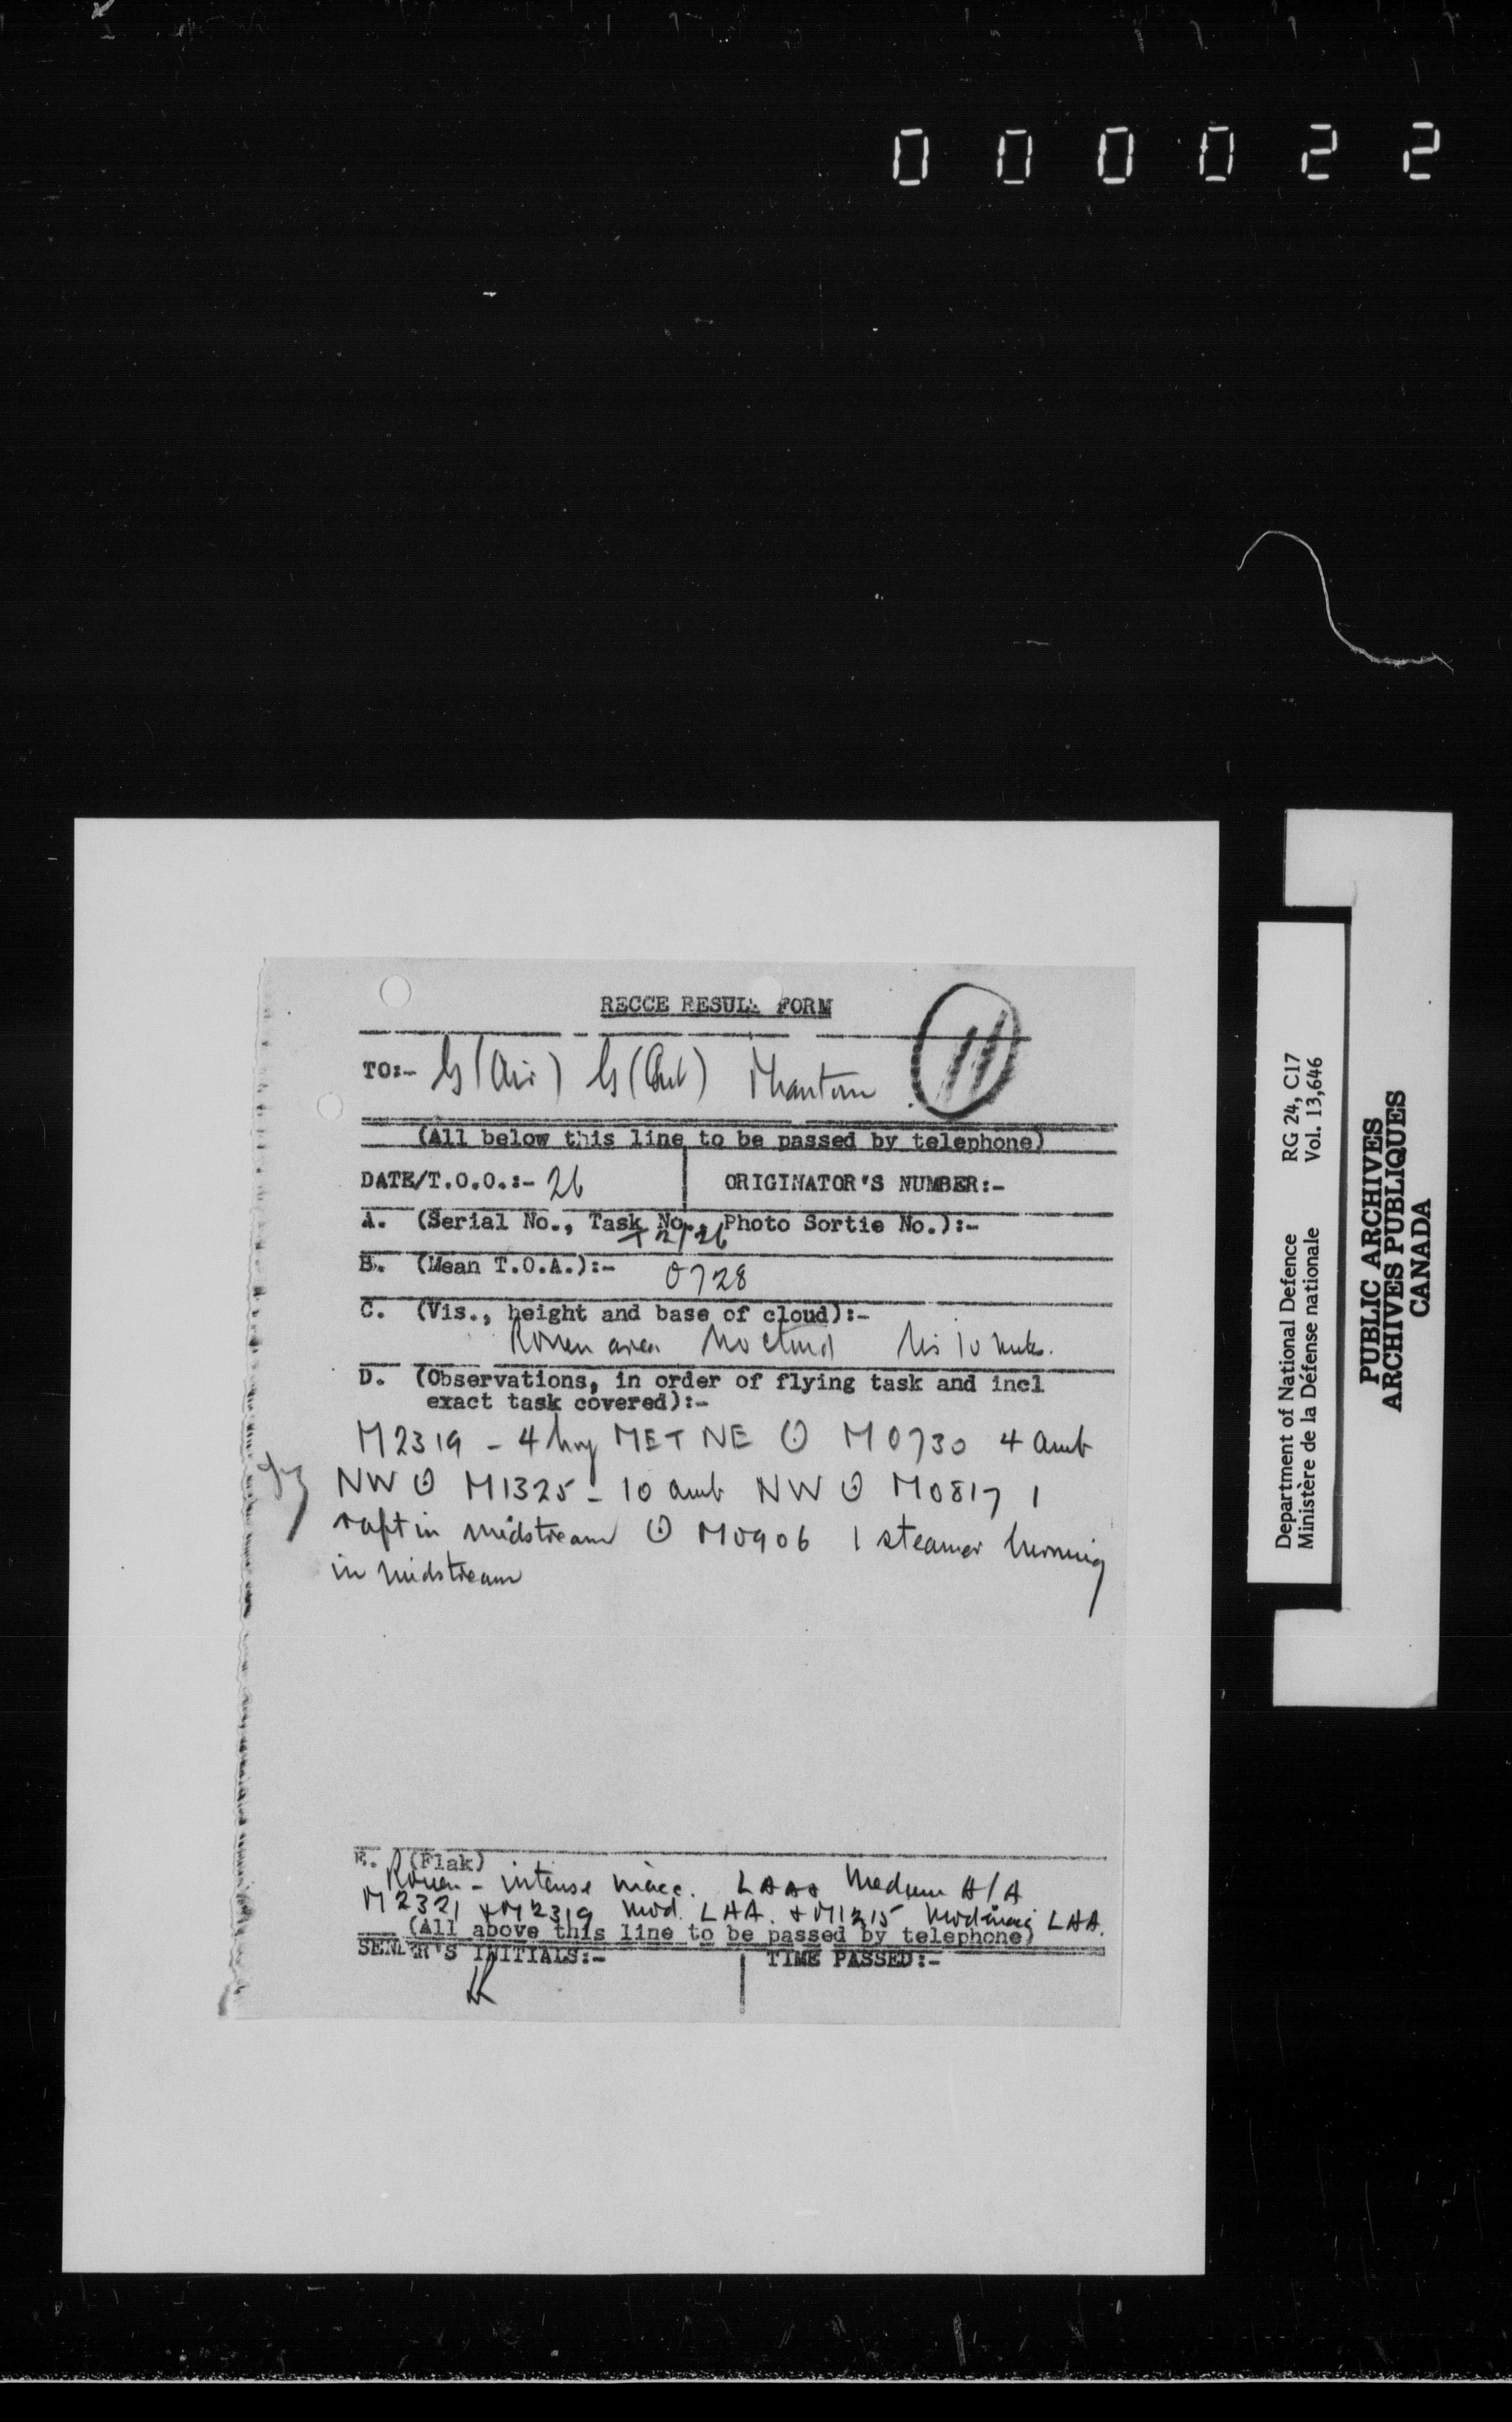 000022
RECCE RESULT FORM
11
TO:- G (Air) G (Int) Phantom
(All below this line to be passed by telephone)
DATE/T.O.O.:- 26
ORIGINATOR'S NUMBER:-
A. (Serial No., Task No., Photo Sortie No.):-
T2/26
B. (Mean T.O.A.):- 0728
C. (Vis., height and base of cloud):-
Rouen area No cloud Vis 10 miles.
D. (Observations, in order of flying task and incl
exact task covered):-
M2319 - 4 hvy MET NE ⊙ M0730 4 amb
NW ⊙ M1325 - 10 amb NW ⊙ M0817 1
raft in midstream ⊙ M0906 1 steamer burning
in midstream
E. (Flak)
Rouen - intense inacc. Medium A/A
M2321 + M2319 mod. LAA. + M1215 LAA.
(All above this line to be passed by telephone)
SENDER'S INITIALS:-
TIME PASSED:-
Department of National Defence RG 24, C17
Ministère de la Défense nationale Vol. 13,646
PUBLIC ARCHIVES
ARCHIVES PUBLIQUES
CANADA